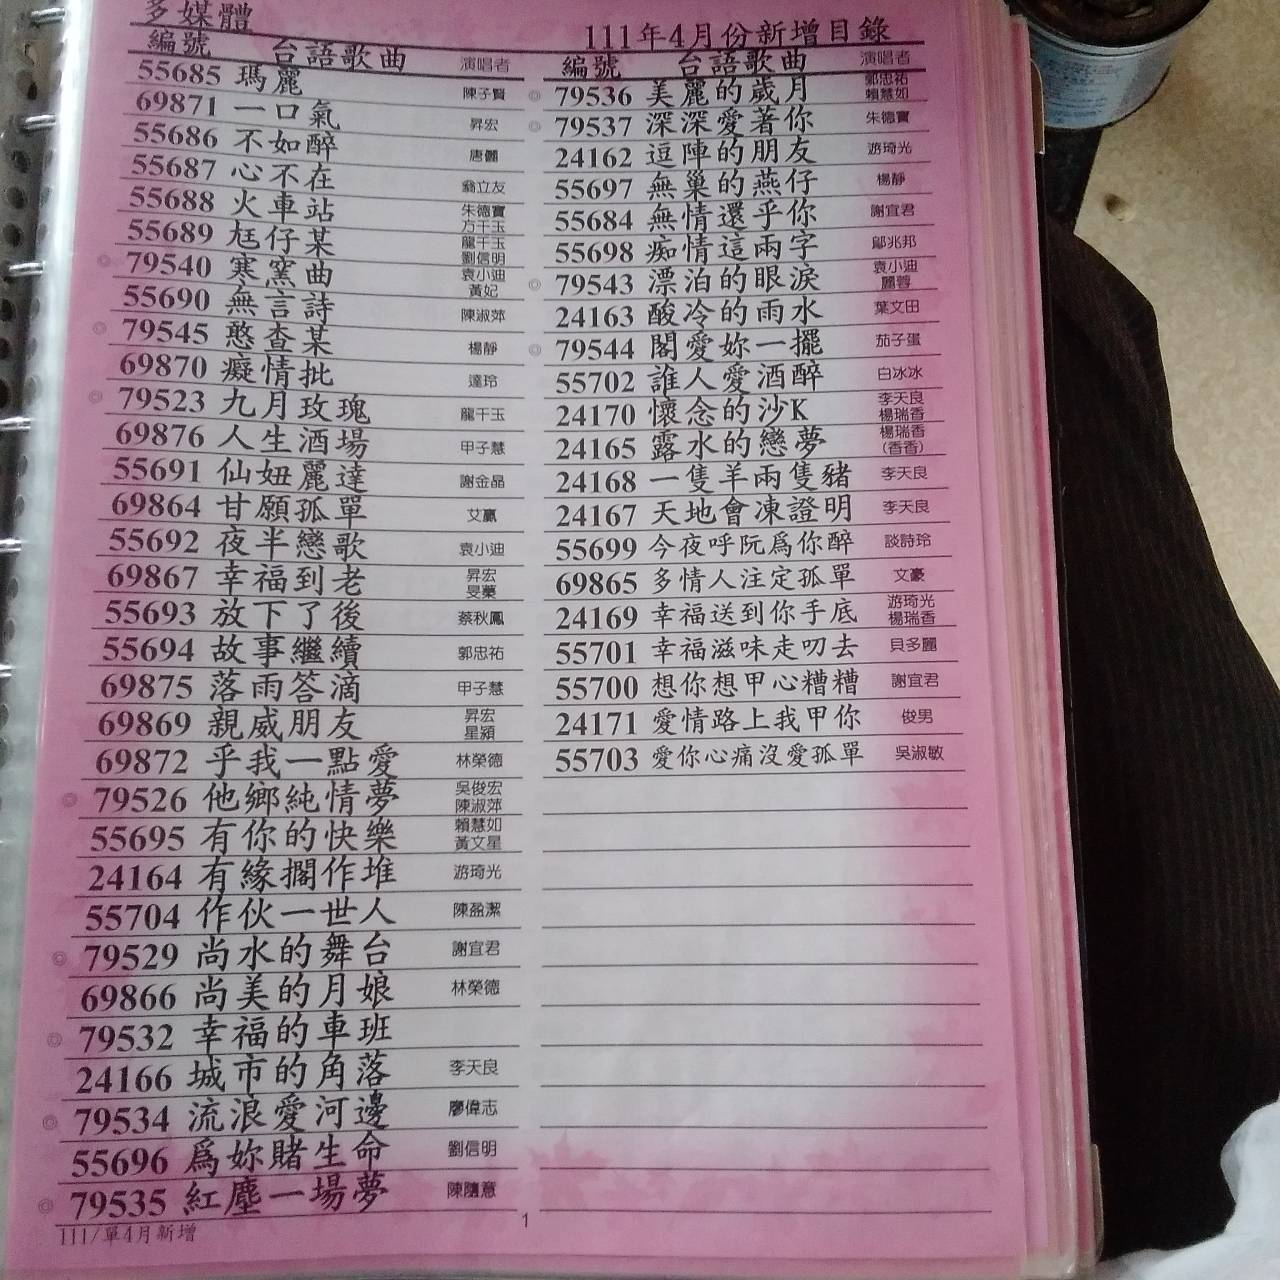 多媒體
111年4月份新增目錄
編號 台語歌曲 演唱者
55685 瑪麗 陳子賢
69871 一口氣 昇宏
55686 不如醉 唐儷
55687 心不在 翁立友
55688 火車站 朱德寶 方千玉
55689 尪仔某 龍千玉 劉信明
◎ 79540 寒窯曲 袁小迪 黃妃
55690 無言詩 陳淑萍
◎ 79545 憨查某 楊靜
69870 癡情批 達玲
◎ 79523 九月玫瑰 龍千玉
69876 人生酒場 甲子慧
55691 仙妞麗達 謝金晶
69864 甘願孤單 艾贏
55692 夜半戀歌 袁小迪
69867 幸福到老 昇宏
55693 放下了後 蔡秋鳳
55694 故事繼續 郭忠祐
69875 落雨答滴 甲子慧
69869 親戚朋友 昇宏 星潁
69872 乎我一點愛 林榮德
◎ 79526 他鄉純情夢 吳俊宏 陳淑萍
55695 有你的快樂 賴慧如 黃文星
24164 有緣擱作堆 游琦光
55704 作伙一世人 陳盈潔
◎ 79529 尚水的舞台 謝宜君
69866 尚美的月娘 林榮德
◎ 79532 幸福的車班
24166 城市的角落 李天良
◎ 79534 流浪愛河邊 廖偉志
55696 為妳賭生命 劉信明
◎ 79535 紅塵一場夢 陳隨意
111/單4月新增
編號 台語歌曲 演唱者
◎ 79536 美麗的歲月 郭忠祐 賴慧如
◎ 79537 深深愛著你 朱德寶
24162 逗陣的朋友 游琦光
55697 無巢的燕仔 楊靜
55684 無情還乎你 謝宜君
55698 痴情這兩字 鄔兆邦
◎ 79543 漂泊的眼淚 袁小迪 麗蓉
24163 酸冷的雨水 葉文田
◎ 79544 閣愛妳一擺 茄子蛋
55702 誰人愛酒醉 白冰冰
24170 懷念的沙K 李天良 楊瑞香
24165 露水的戀夢 楊瑞香 (香香)
24168 一隻羊兩隻豬 李天良
24167 天地會凍證明 李天良
55699 今夜呼阮為你醉 談詩玲
69865 多情人注定孤單 文豪
24169 幸福送到你手底 游琦光 楊瑞香
55701 幸福滋味走叨去 貝多麗
55700 想你想甲心糟糟 謝宜君
24171 愛情路上我甲你 俊男
55703 愛你心痛沒愛孤單 吳淑敏
1